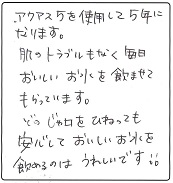 アクアス5を使用して5年に
なります。
肌のトラブルもなく毎日
おいしいお水を飲ませて
もらっています。
どのじゃ口をひねっても
安心しておいしいお水を
飲めるのはうれしいです